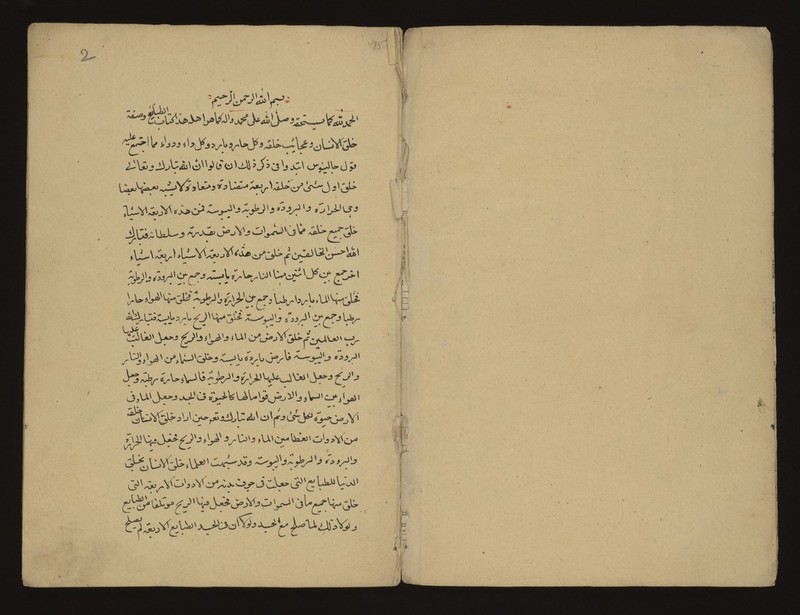 2
بسم الله الرحمن الرحيم
الحمد لله كما يستحقه وصلى الله على محمد واله كما هو اهله هذا كتاب الطبايع وصفة
خلق الانسان وعجايب خلقه وكل حار وبارد وكل داء ودواء مما اجتمع عليه
قول جالينوس ابتدوا فى ذكر ذلك ان قالوا ان الله تبارك وتعالى
خلق اول شئ من خلقه اربعة متضادة ومتعاوة لا يشبه بعضها بعضا
وهى الحرارة والبرودة والرطوبة واليبوسة فمن هذه الاربعة الاشياء
خلق جميع خلقه مما فى السموات والارض بقدرته وسلطانه فتبارك
الله احسن الخالقين ثم خلق من هذه الاربعة الاشياء اربعة اشياء
اخر جمع بين كل اثنين منها النار حارة يابسة وجمع بين البرودة والرطوبة
فخلق منها الماء باردا رطبا وجمع بين الحرارة والرطوبة فخلق منها الهواء حارا
رطبا وجمع بين البرودة واليبوسة فخلق منها الريح باردة يابسة فتبارك الله
رب العالمين ثم خلق الارض من الماء والهواء والريح وجعل الغالب عليها
البرودة واليبوسة فارض باردة يابسة وخلق السماء من الهواء والنار
والريح وجعل الغالب عليها الحرارة والرطوبة فالسماء حارة رطبة وجعل
الهواء بين السماء والارض قوامالها كالحيوة فى الجسد وجعل الماء فى
الارض حيوة لكل شئ وثم ان الله تبارك وتعه حين اراد خلق الانسان خلقه
من الادوات العظام من الماء والنار والهواء والريح فجعل فيها الحرارة
والبرودة والرطوبة واليبوسة وقد سمت العلماء خلق الانسان بخلق
الدنيا للطبايع التى جعلت فى جوف بدنه من الادوات الاربعة التى
خلق منها جميع ما فى السموات والارض فجعل فيها الريح موتلفا من الطبايع
ولولا ذلك لما صلح مع الجسد ولو كان فى الجسد الطبايع الاربعة لم يصلح